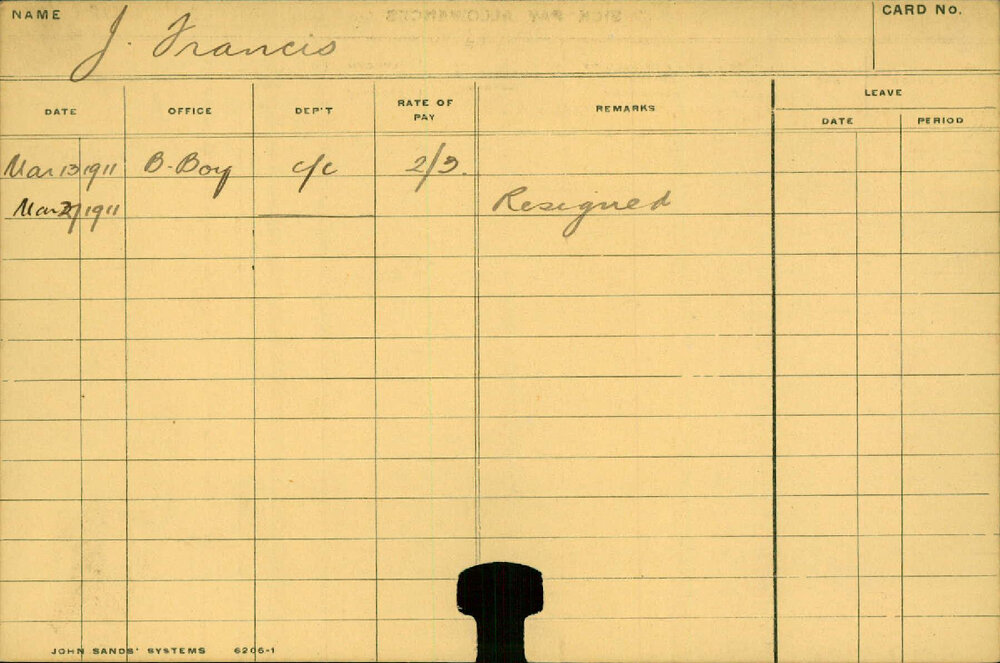 NAME J. Francis CARD No.
DATE OFFICE DEP'T RATE OF PAY REMARKS LEAVE
DATE PERIOD
Mar 13 1911 B-Boy c/c 2/3.
Mar 27 1911 Resigned
JOHN SANDS' SYSTEMS 6206-1